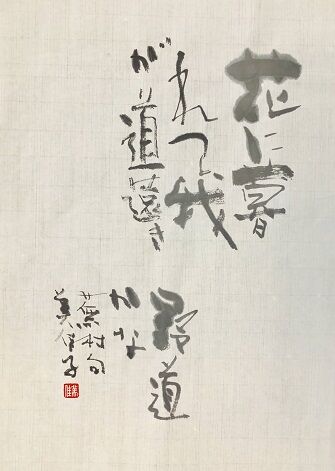 花に暮
れて我
が道遠き
野道
かな
蕪村句
美佳子